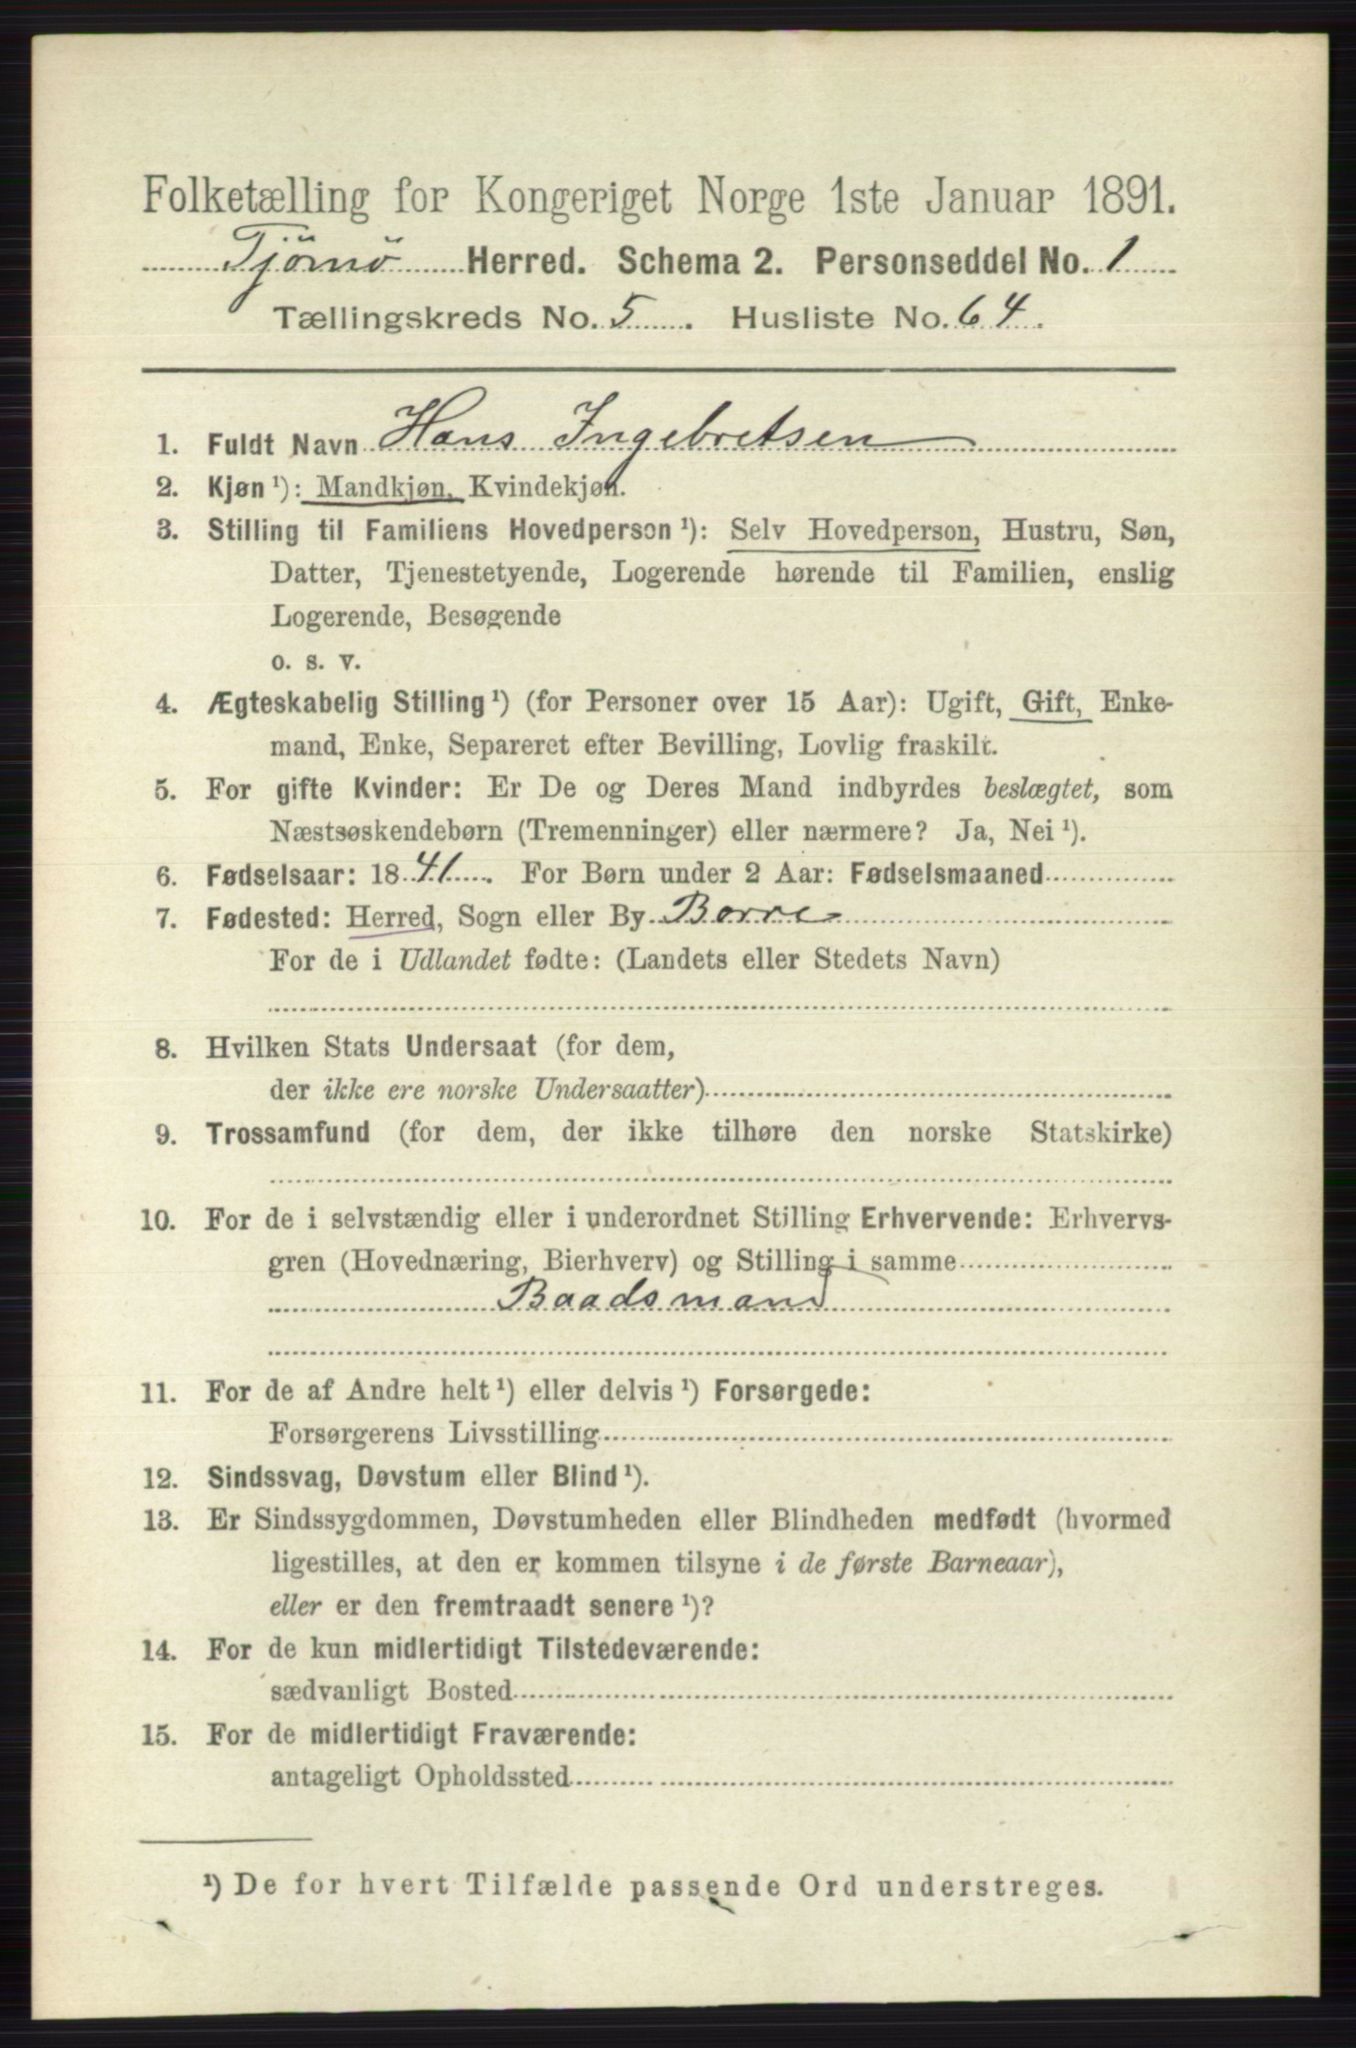 Folketælling for Kongeriget Norge 1ste Januar 1891.
Tjømø Herred. Schema 2. Personseddel No. 1
Tællingskreds No. 5. Husliste No. 64.
1. Fuldt Navn Hans Ingebretsen
2. Kjøn ¹): Mandkjøn, Kvindekjøn.
3. Stilling til Familiens Hovedperson ¹): Selv Hovedperson, Hustru, Søn,
Datter, Tjenestetyende, Logerende hørende til Familien, enslig
Logerende, Besøgende
o. s. v.
4. Ægteskabelig Stilling ¹) (for Personer over 15 Aar): Ugift, Gift, Enke-
mand, Enke, Separeret efter Bevilling, Lovlig fraskilt.
5. For gifte Kvinder: Er De og Deres Mand indbyrdes beslægtet, som
Næstsøskendebørn (Tremenninger) eller nærmere? Ja, Nei ¹).
6. Fødselsaar: 1841. For Børn under 2 Aar: Fødselsmaaned
7. Fødested: Herred, Sogn eller By Borre
For de i Udlandet fødte: (Landets eller Stedets Navn)
8. Hvilken Stats Undersaat (for dem,
der ikke ere norske Undersaatter)
9. Trossamfund (for dem, der ikke tilhøre den norske Statskirke)
10. For de i selvstændig eller i underordnet Stilling Erhvervende: Erhvervs-
gren (Hovednæring, Bierhverv) og Stilling i samme
Baadsmand
11. For de af Andre helt ¹) eller delvis ¹) Forsørgede:
Forsørgerens Livsstilling
12. Sindssvag, Døvstum eller Blind ¹).
13. Er Sindssygdommen, Døvstumheden eller Blindheden medfødt (hvormed
ligestilles, at den er kommen tilsyne i de første Barneaar),
eller er den fremtraadt senere ¹)?
14. For de kun midlertidigt Tilstedeværende:
sædvanligt Bosted
15. For de midlertidigt Fraværende:
antageligt Opholdssted
¹) De for hvert Tilfælde passende Ord understreges.